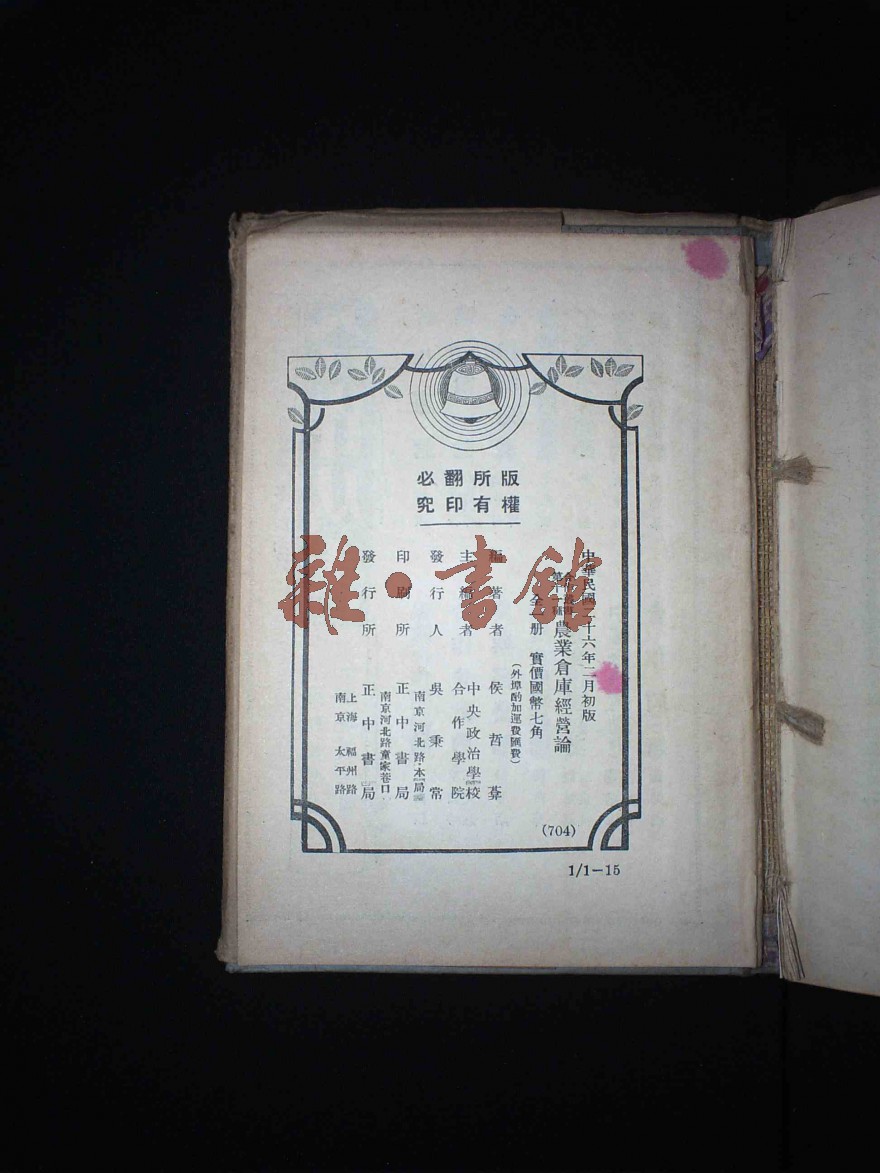 版權所有翻印必究
中華民國二十六年二月初版
農業倉庫經營論
全一册 實價國幣七角
(外埠酌加運費匯費)
編著者 侯哲葊
主編者 中央政治學校合作學院
發行人 吳秉常
南京河北路本局
印刷所 正中書局
南京河北路童家巷口
發行所 正中書局
上海福州路
南京太平路
(704)
1/1-15
雜·書館